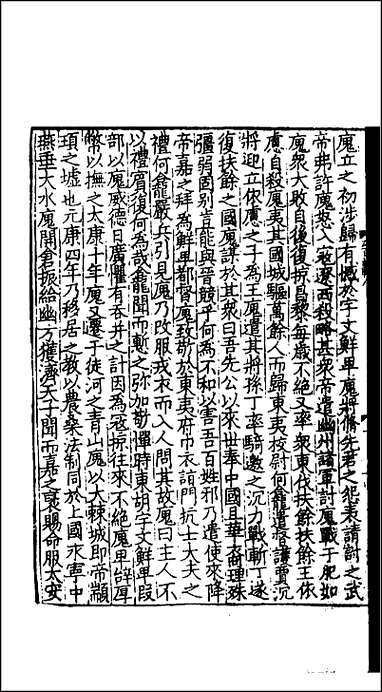 廆立之初涉歸有憾於宇文鮮卑廆將脩先君之怨表請討之武
帝弗許廆怒入寇遼西殺略甚衆帝遣幽州諸軍討廆戰于肥如
廆衆大敗自後復掠昌黎每歲不絕又率衆東伐扶餘扶餘王依
慮自殺廆夷其國城驅萬餘人而歸東夷校尉何龕遣督護賈沉
將迎立依慮之子為王廆遣其將孫丁率騎邀之沉力戰斬丁遂
復扶餘之國廆謀於其衆曰吾先公以來世奉中國且華裔理殊
彊弱固別豈能與晉競乎何為不和以害吾百姓邪乃遣使來降
帝嘉之拜為鮮卑都督廆致敬於東夷府巾衣詣門抗士大夫之
禮何龕嚴兵引見廆乃改服戎衣而入人問其故廆曰主人不
以禮賓復何為哉龕聞而慚之弥加敬憚時東胡宇文鮮卑段
部以廆威德日廣懼有吞并之計因為寇掠往來不絕廆卑辭厚
幣以撫之太康十年廆又遷于徒河之青山廆以大棘城即帝顓
頊之墟也元康四年乃移居之教以農桑法制同於上國永寧中
燕垂大水廆開倉振給幽方獲濟天子聞而嘉之褒賜命服太安